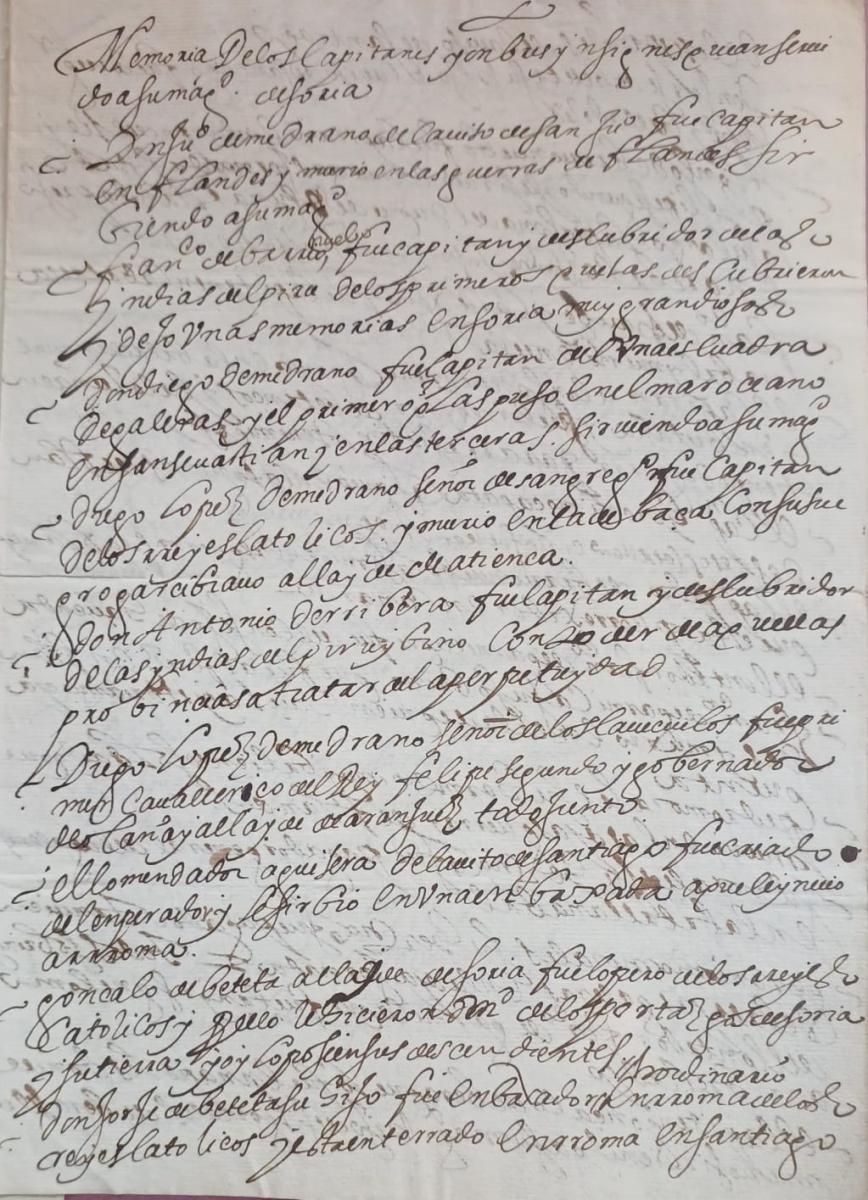 Memoria De los Capitanes y onbres ynsignes q̃ an serui
do a su mag^d. de soria
Don Ju^o de medrano del auito de san Ju^o fue capitan
en flandes y murio en las guerras de flandes sir
biendo a su mag^d
fran^co de barrio nuebo fue capitan y descubridor de las
yndias del piru de los primeros que las descubrieron
y dejo unas memorias en soria muy grandiosas
don diego de medrano fue capitan de una escuadra
de galeras y el primero q̃ las puso en el mar oceano
en san seuastian y en las terceras. sirviendo a su mag^d
diego lopez de medrano señor de san greg^o fue capitan
de los rreyes catolicos. y murio en la de baça con su sue
gro garcibrauo allayde de atiença.
don Antonio de rribera fue capitan y descubridor
de las yndias del piru y bino con poder de aquellas
probincias a tratar de la perpetuydad
Diego lopez de medrano señor de los cauecuelos fue pri
mer cauallerico del Rey felipe segundo y gobernador
de ocaña y allayde de aranjuez todo junto
el comendador aguilera del auito de santiago fue criado
del enperador y le sirbio en una enbaxada a que le ynuio
a rroma.
gonçalo de beteta allayde de soria fue copero de los rreyes
catolicos y por ello le hicieron m^d de los portazgos de soria
y su tierra y oy los posseen sus descendientes
don jorje de beteta su hijo fue enbaxador hordinario en rroma de los
reyes catolicos y esta enterrado en rroma en santiago